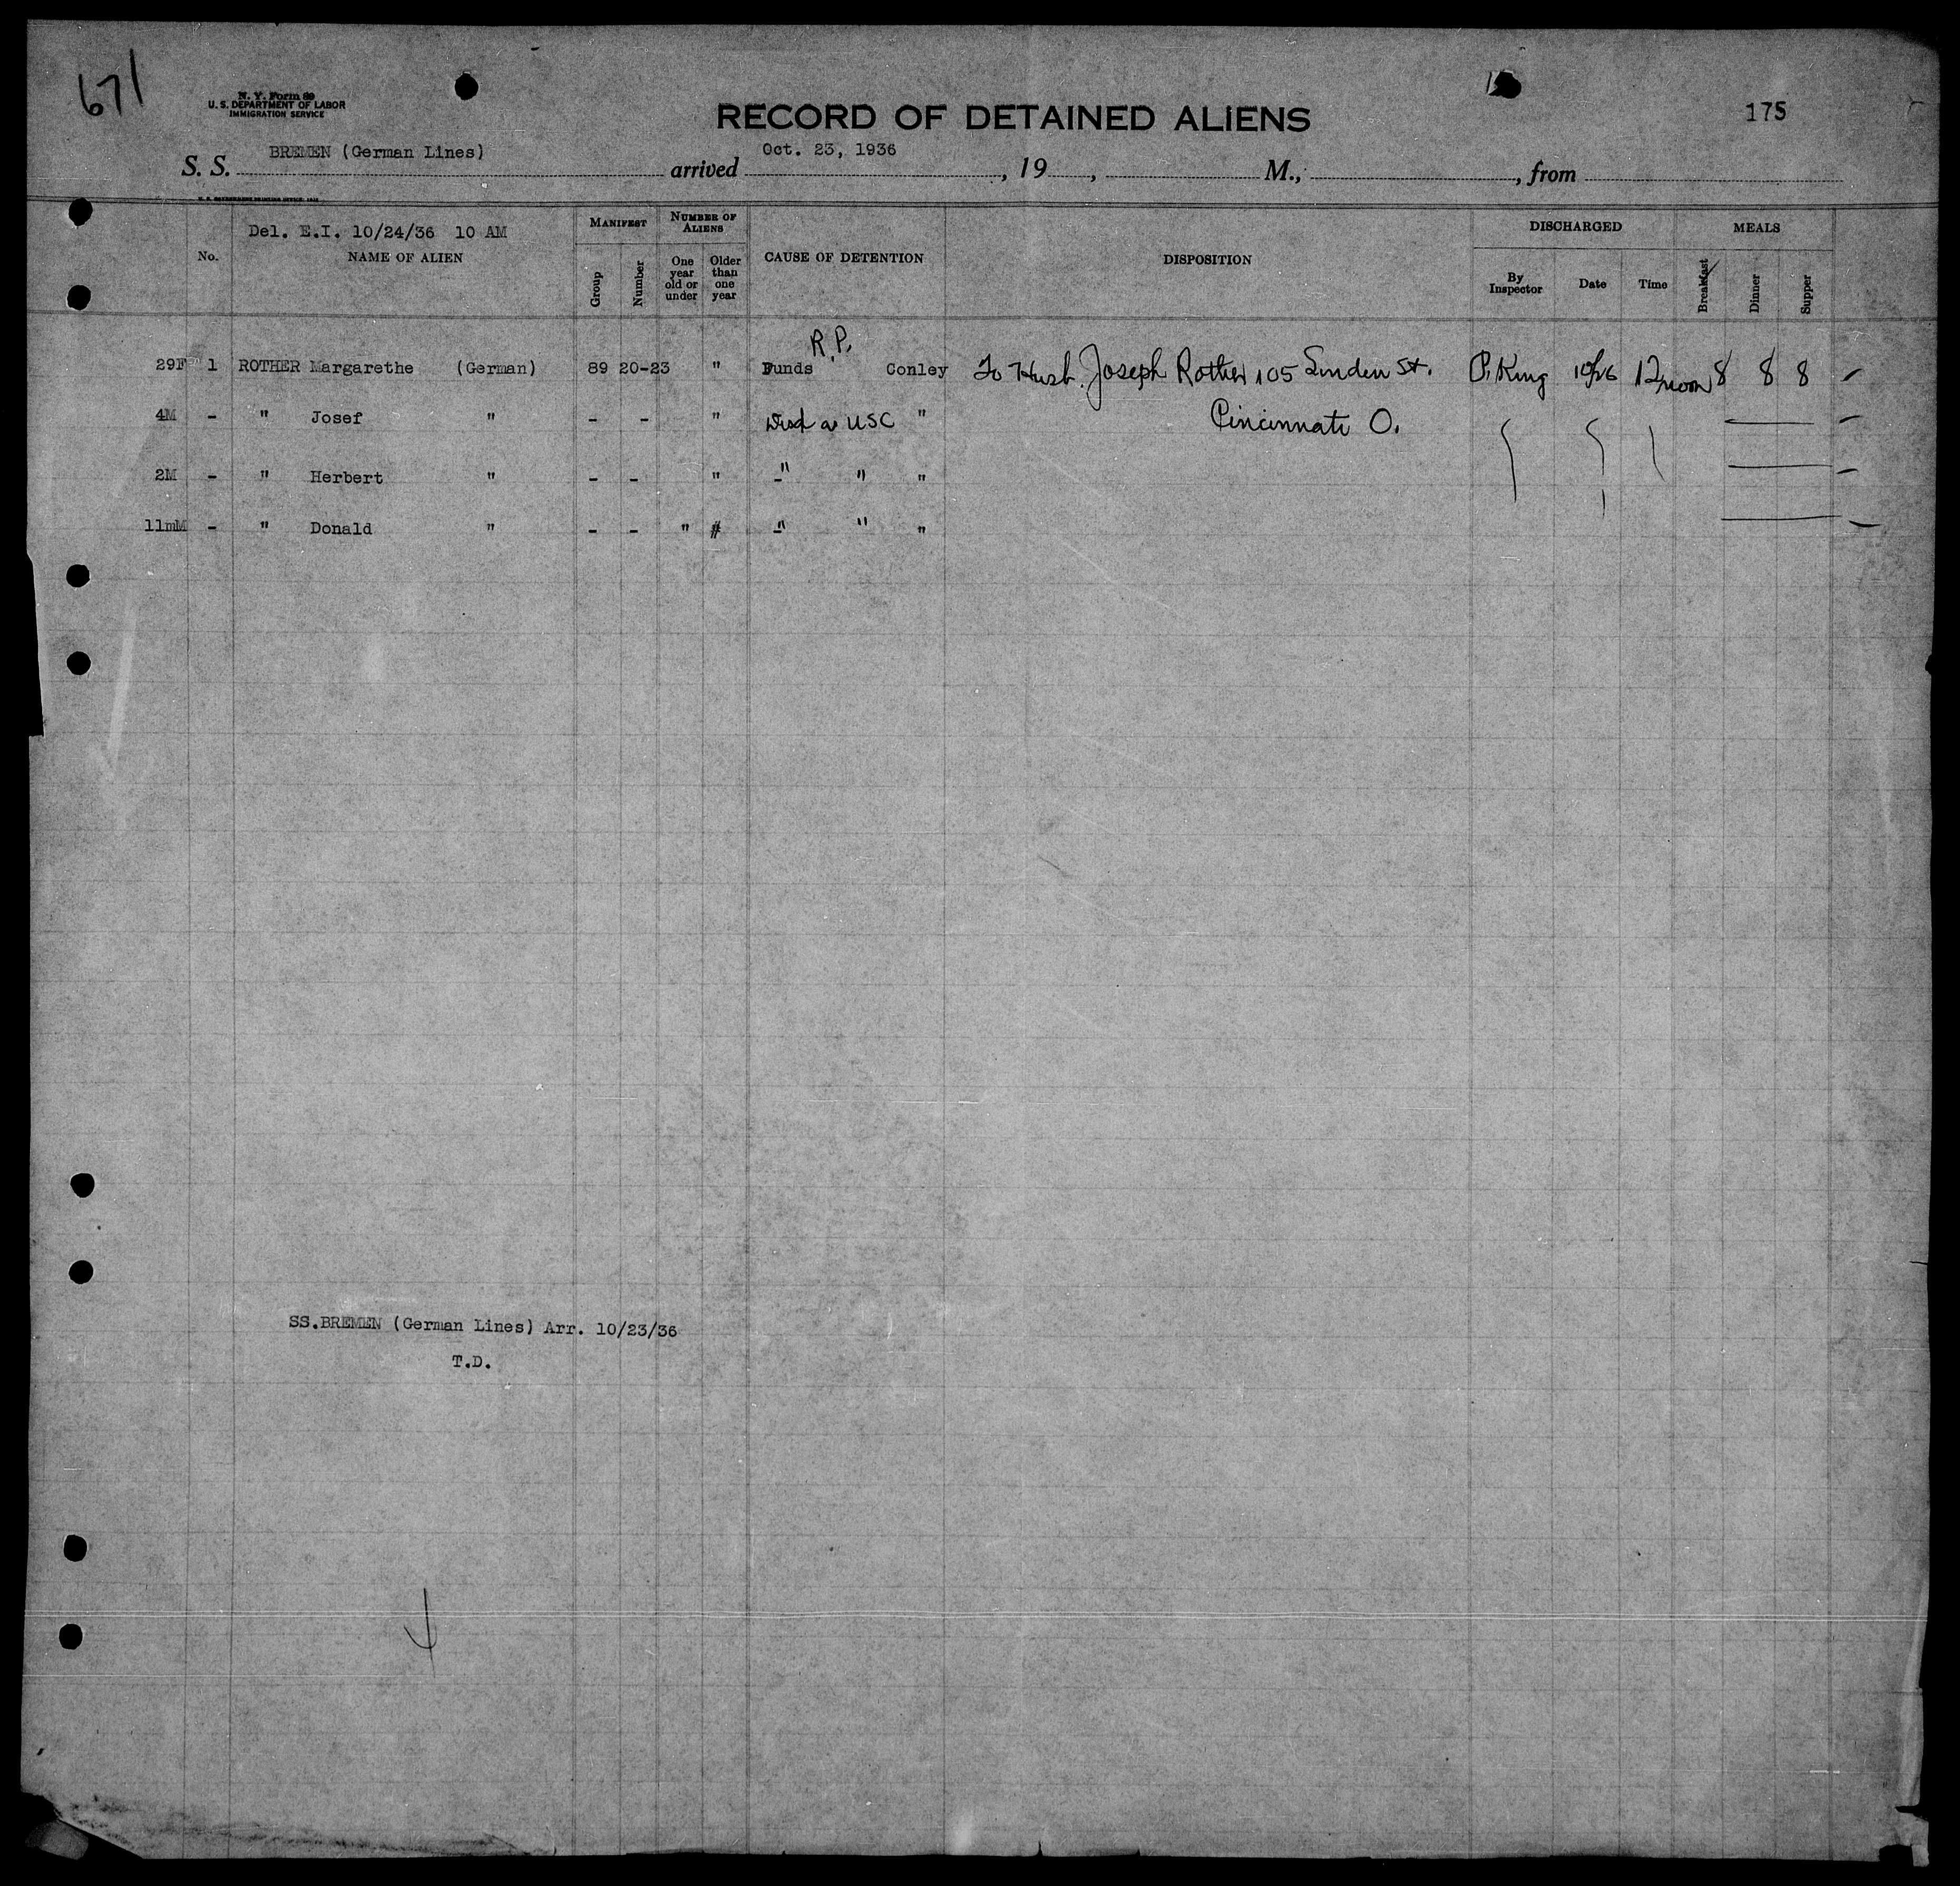 671
N. Y. Form 89
U. S. DEPARTMENT OF LABOR
IMMIGRATION SERVICE
RECORD OF DETAINED ALIENS
175
S. S. BREMEN (German Lines) arrived Oct. 23, 1936, 19, M., from
Del. E.I. 10/24/36 10 AM
No. NAME OF ALIEN MANIFEST Group Number NUMBER OF ALIENS One year old or under Older than one year CAUSE OF DETENTION DISPOSITION DISCHARGED By Inspector Date Time MEALS Breakfast Dinner Supper
R.P.
29F 1 ROTHER Margarethe (German) 89 20-23 " Funds Conley To Husb. Joseph Rother 105 Linden St. P. King 10/26 12 noon 8 8 8 -
4M - " Josef " - - " as USC " Cincinnati O. -
2M - " Herbert " - - " " " " -
11mM - " Donald " - - " " " " -
SS.BREMEN (German Lines) Arr. 10/23/36
T.D.